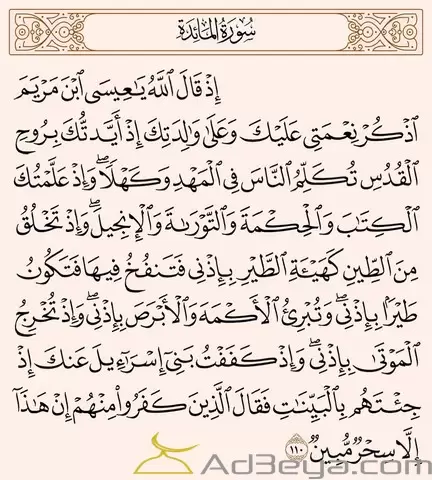 سُورَةُ المَائِدَة
إِذْ قَالَ ٱللَّهُ يَٰعِيسَى ٱبْنَ مَرْيَمَ
ٱذْكُرْ نِعْمَتِي عَلَيْكَ وَعَلَىٰ وَٰلِدَتِكَ إِذْ أَيَّدتُّكَ بِرُوحِ
ٱلْقُدُسِ تُكَلِّمُ ٱلنَّاسَ فِي ٱلْمَهْدِ وَكَهْلًا ۖ وَإِذْ عَلَّمْتُكَ
ٱلْكِتَٰبَ وَٱلْحِكْمَةَ وَٱلتَّوْرَىٰةَ وَٱلْإِنجِيلَ ۖ وَإِذْ تَخْلُقُ
مِنَ ٱلطِّينِ كَهَيْـَٔةِ ٱلطَّيْرِ بِإِذْنِي فَتَنفُخُ فِيهَا فَتَكُونُ
طَيْرًۢا بِإِذْنِي ۖ وَتُبْرِئُ ٱلْأَكْمَهَ وَٱلْأَبْرَصَ بِإِذْنِي ۖ وَإِذْ تُخْرِجُ
ٱلْمَوْتَىٰ بِإِذْنِي ۖ وَإِذْ كَفَفْتُ بَنِيٓ إِسْرَٰٓءِيلَ عَنكَ إِذْ
جِئْتَهُم بِٱلْبَيِّنَٰتِ فَقَالَ ٱلَّذِينَ كَفَرُوا۟ مِنْهُمْ إِنْ هَٰذَآ
إِلَّا سِحْرٌ مُّبِينٌ ١١٠
Ad3eya.com